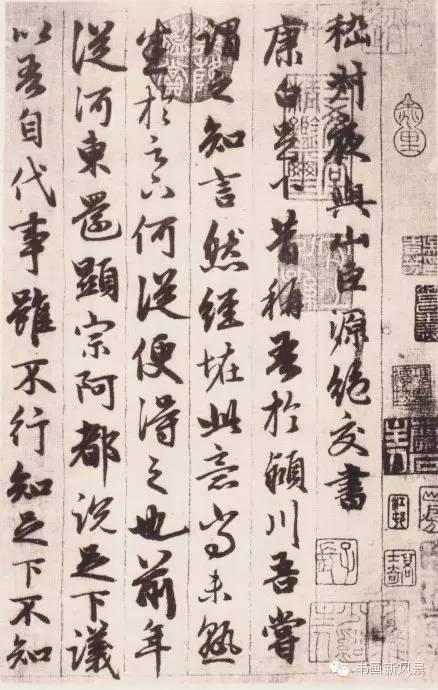 嵇叔夜與山巨源絕交書
康白足下昔稱吾於潁川吾嘗
謂之知言然經怪此意尚未熟
悉於足下何從便得之也前年
從河東還顯宗阿都說足下議
以吾自代事雖不行知足下不知
书画新风景